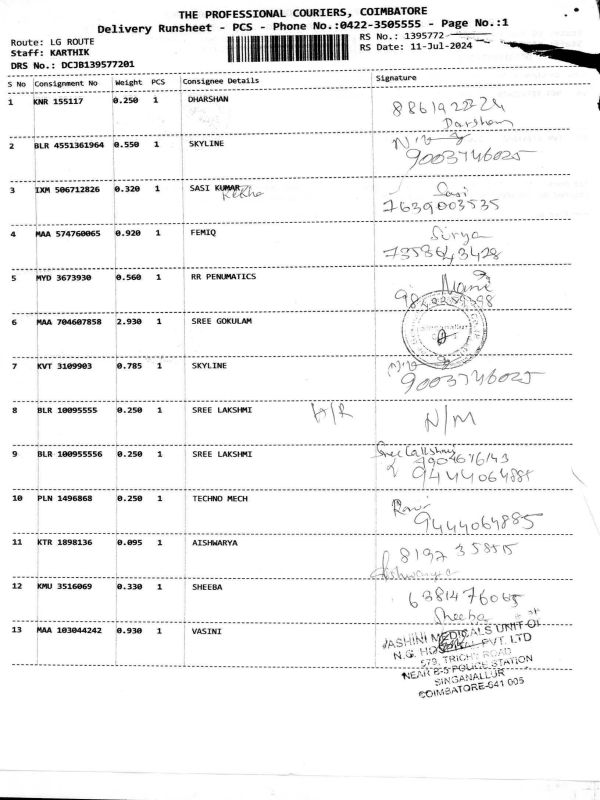 THE PROFESSIONAL COURIERS, COIMBATORE
Delivery Runsheet - PCS - Phone No.:0422-3505555 - Page No.:1
Route: LG ROUTE
RS No.: 1395772
Staff: KARTHIK
RS Date: 11-Jul-2024
DRS No.: DCJB139577201
S No Consignment No Weight PCS Consignee Details Signature
1 KNR 155117 0.250 1 DHARSHAN
Darshan
2 BLR 4551361964 0.550 1 SKYLINE
9003746025
3 IXM 506712826 0.320 1 SASI KUMAR Sasi
Rekha 7639003535
4 MAA 574760065 0.920 1 FEMIQ Surya
7358643428
5 MYD 3673930 0.560 1 RR PENUMATICS Mani
6 MAA 704607858 2.930 1 SREE GOKULAM
7 KVT 3109903 0.785 1 SKYLINE
9003746025
8 BLR 10095555 0.250 1 SREE LAKSHMI N/M
9 BLR 100955556 0.250 1 SREE LAKSHMI Sree Lakshmi
10 PLN 1496868 0.250 1 TECHNO MECH Ravi
9444064885
11 KTR 1898136 0.095 1 AISHWARYA
Aishwarya
12 KMU 3516069 0.330 1 SHEEBA 6381476065
Sheeba
13 MAA 103044242 0.930 1 VASINI
MEDICALS UNIT OF
N.G. HOSPITAL PVT. LTD
579, TRICHY ROAD
NEAR B-5 POLICE STATION
SINGANALLUR
COIMBATORE-641 005